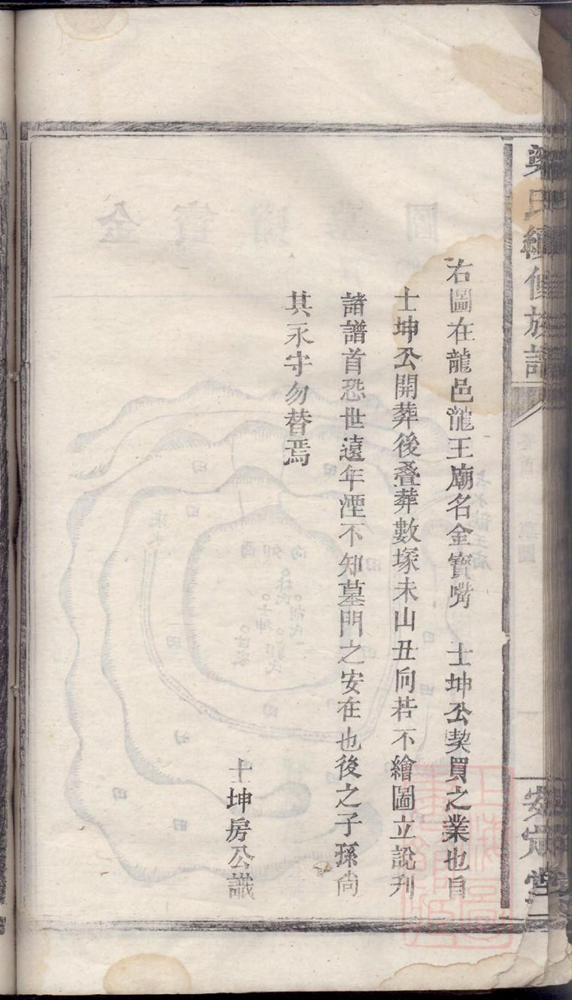 氏續修族譜
右圖在龍邑龍王廟名金寳嘴　士坤公契買之業也自
士坤公開葬後叠葬數塚未山丑向若不繪圖立說刋
諸譜首恐世遠年湮不知墓門之安在也後之子孫尙
其永守勿替焉
士坤房公識
安定堂